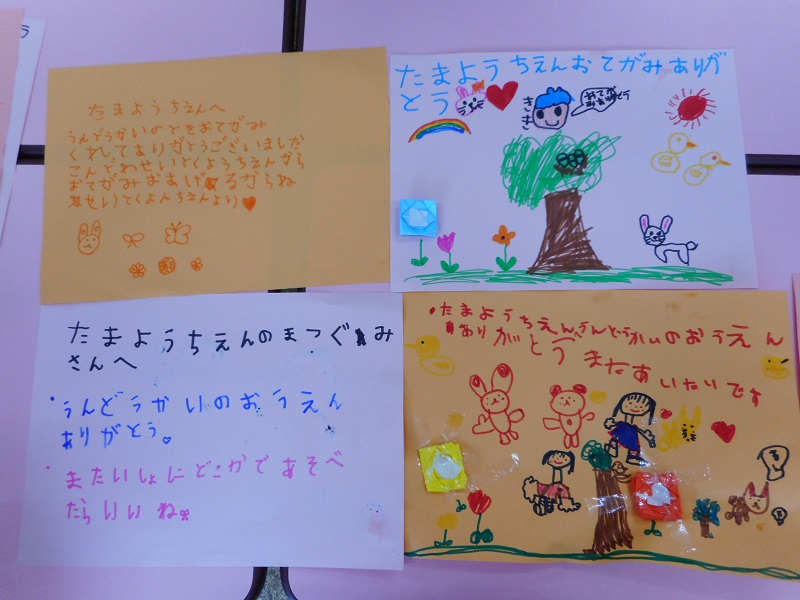 たまようちえんへ
うんどうかいのときおてがみ
くれてありがとうございました
こんどわせいとくようちえんから
おてがみおあげるからね
せいとくよんちえんより
たまようちえんおてがみありが
とう
ききき
おてがみありがとう
たまようちえんのまつぐみ
さんへ
・うんどうかいのおうえん
ありがとう。
・またいしょにどこかであそべ
たらいいね。
・たまようちえんうんどうかいのおうえん
ありがとう またあいたいです